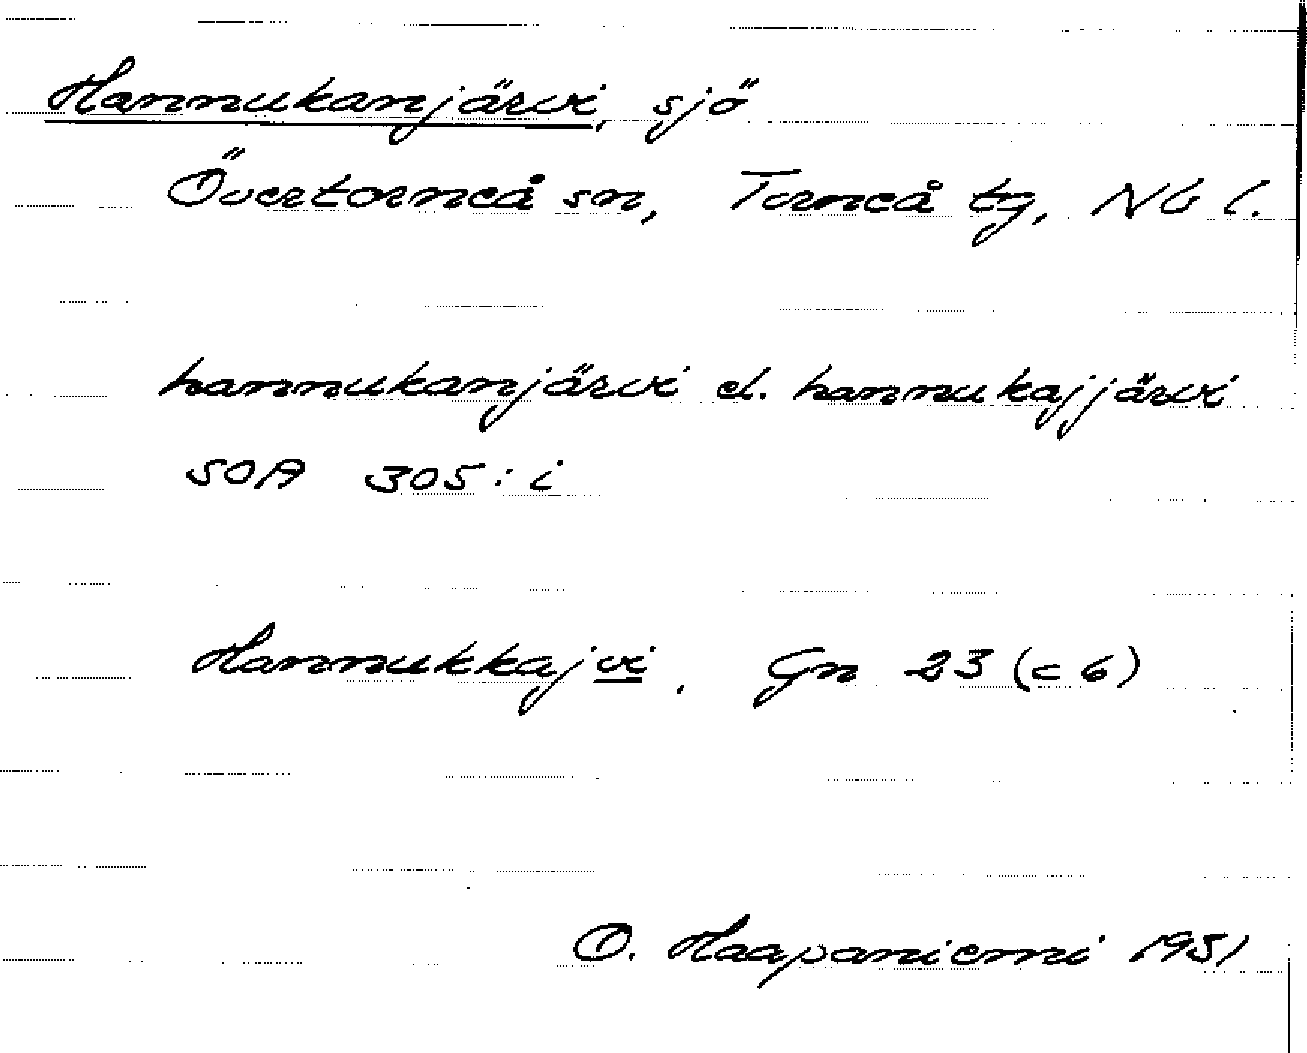 Hannukanjärvi, sjö
Övertorneå sn, Torneå tg, Nb l.
hannukanjärvi el. hannukajjärvi
SOA 305:i
Hannukkajvi, Gn 23 (c 6)
O. Haapaniemi 1951